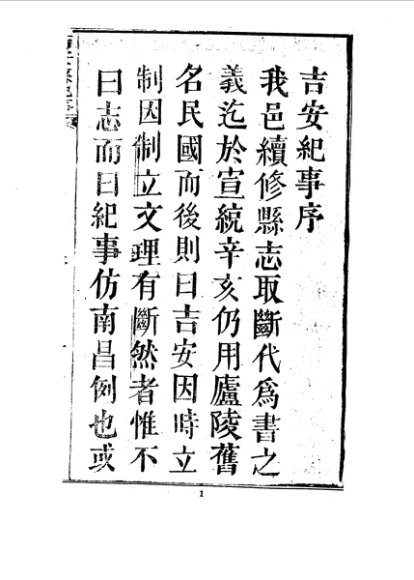 吉安紀事序
我邑續修縣志取斷代爲書之
義迄於宣統辛亥仍用廬陵舊
名民國而後則曰吉安因時立
制因制立文理有斷然者惟不
曰志而曰紀事仿南昌例也或
1